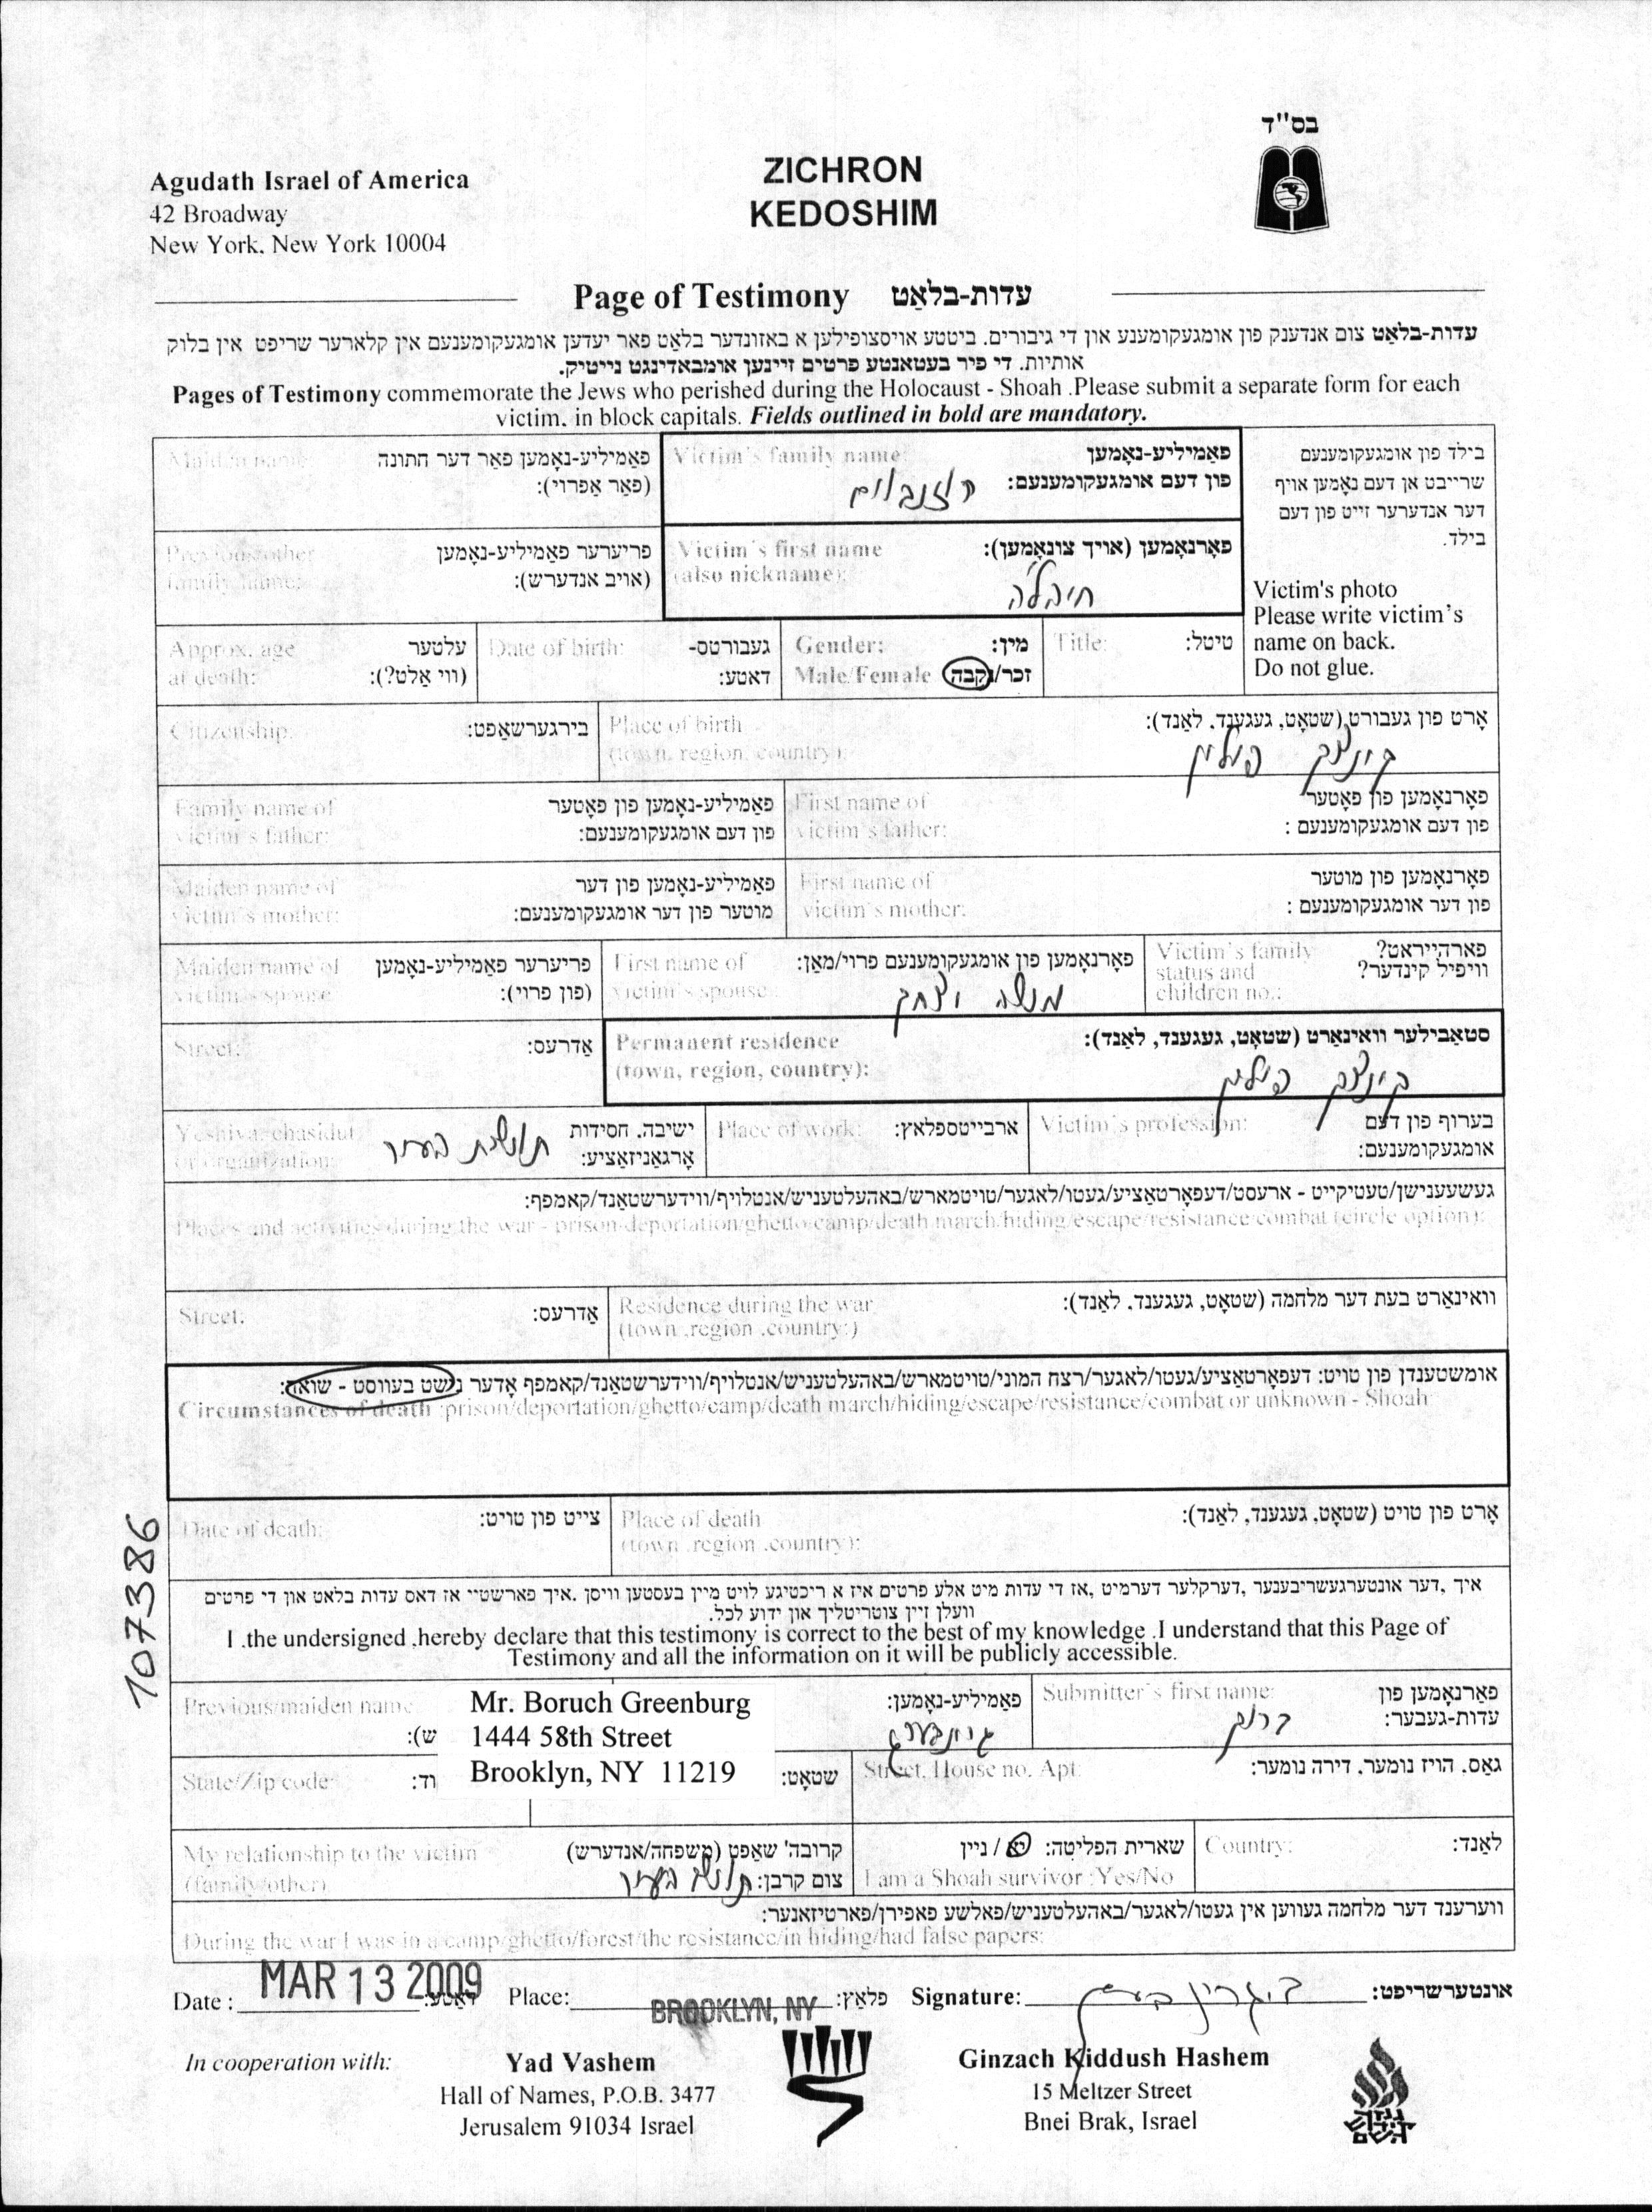 בס"ד
Agudath Israel of America
42 Broadway
New York, New York 10004
ZICHRON
KEDOSHIM
Page of Testimony עדות-בלאַט
עדות-בלאַט צום אנדענק פון אומגעקומענע און די גיבורים. ביטטע אויסצופילען א באזונדער בלאַט פאר יעדען אומגעקומענעם אין קלארער שריפט אין בלוק
אותיות. די פיר בעטאנטע פרטים זיינען אומבאדינגט נייטיק.
Pages of Testimony commemorate the Jews who perished during the Holocaust - Shoah .Please submit a separate form for each
victim, in block capitals. Fields outlined in bold are mandatory.
בילד פון אומגעקומענעם
שרייבט אן דעם נאָמען אויף
דער אנדערער זייט פון דעם
בילד.
Victim's photo
Please write victim's
name on back.
Do not glue.
Victim's family name: פאַמיליע-נאָמען
פון דעם אומגעקומענעם: רוזנבלום
Maiden name פאַמיליע-נאָמען פאַר דער חתונה
(פאַר אַפרוי):
Victim's first name פאָרנאָמען (אויך צונאָמען):
(also nickname):
חיה'לה
Previous/other פריערער פאַמיליע-נאָמען
family name: (אויב אנדערש):
Title: טיטל:
Gender: מין:
Male/Female זכר/נקבה
Date of birth: געבורטס-
דאטע:
Approx. age עלטער
at death: (ווי אַלט?):
Place of birth אָרט פון געבורט (שטאָט, געגענד, לאַנד):
(town, region, country):
פולין
Citizenship: בירגערשאַפט:
First name of פאָרנאָמען פון פאָטער
victim's father: פון דעם אומגעקומענעם :
Family name of פאַמיליע-נאָמען פון פאָטער
victim's father: פון דעם אומגעקומענעם:
First name of פאָרנאָמען פון מוטער
victim's mother: פון דער אומגעקומענעם :
Maiden name of פאַמיליע-נאָמען פון דער
victim's mother: מוטער פון דער אומגעקומענעם:
Victim's family פארהייראט?
status and וויפיל קינדער?
children no.:
First name of פאָרנאָמען פון אומגעקומענעם פרוי/מאַן:
victim's spouse: מנשה יצחק
Maiden name of פריערער פאַמיליע-נאָמען
victim's spouse (פון פרוי):
Permanent residence סטאַבילער וואוינאָרט (שטאָט, געגענד, לאַנד):
(town, region, country):
פולין
Street: אַדרעס:
Victim's profession: בערוף פון דעם
אומגעקומענעם:
Place of work: ארבייטספלאַץ:
Yeshiva, chasidut ישיבה, חסידות
or organization: אָרגאַניזאַציע: תושבת העיר
געשעענישן/טעטיקייט - ארעסט/דעפאָרטאַציע/געטו/לאגער/טויטמארש/באהעלטעניש/אנטלויף/ווידערשטאַנד/קאמפף:
Places and activities during the war - prison/deportation/ghetto/camp/death march/hiding/escape/resistance/combat (circle option):
Residence during the war וואוינאָרט בעת דער מלחמה (שטאָט, געגענד, לאַנד):
(town .region .country:)
Street: אַדרעס:
אומשטענדן פון טויט: דעפאָרטאַציע/געטו/לאגער/רצח המוני/טויטמארש/באהעלטעניש/אנטלויף/ווידערשטאַנד/קאמפף אָדער נישט בעוואוסט - שואה:
Circumstances of death :prison/deportation/ghetto/camp/death march/hiding/escape/resistance/combat or unknown - Shoah
Place of death אָרט פון טויט (שטאָט, געגענד, לאַנד):
(town .region .country):
Date of death: צייט פון טויט:
107386
איך ,דער אונטערגעשריבענער ,דערקלער דערמיט ,אז די עדות מיט אלע פרטים איז א ריכטיגע לויט מיין בעסטען וויסן .איך פארשטיי אז דאס עדות בלאט און די פרטים
וועלן זיין צוטריטליך און ידוע לכל.
I .the undersigned .hereby declare that this testimony is correct to the best of my knowledge .I understand that this Page of
Testimony and all the information on it will be publicly accessible.
Submitter's first name: פאָרנאָמען פון
עדות-געבער: ברוך
פאַמיליע-נאָמען: גרינבערג
Previous/maiden name
ש):
Mr. Boruch Greenburg
1444 58th Street
Brooklyn, NY 11219
Street, House no. Apt: גאַס, הויז נומער, דירה נומער:
שטאָט:
State/Zip code: וד:
Country: לאַנד:
שארית הפליטה: יא / ניין
I am a Shoah survivor :Yes/No
My relationship to the victim קרובה' שאַפט (משפחה/אנדערש)
(family/other) צום קרבן: תושב העיר
ווערענד דער מלחמה געווען אין געטו/לאגער/באהעלטעניש/פאלשע פאפירן/פארטיזאנער:
During the war I was in a camp/ghetto/forest/the resistance/in hiding/had false papers:
Date : MAR 13 2009 דאַטע: Place: BROOKLYN, NY פלאַץ: Signature: אונטערשריפט:
In cooperation with:
Yad Vashem
Hall of Names, P.O.B. 3477
Jerusalem 91034 Israel
Ginzach Kiddush Hashem
15 Meltzer Street
Bnei Brak, Israel
גנזך
קידוש
השם